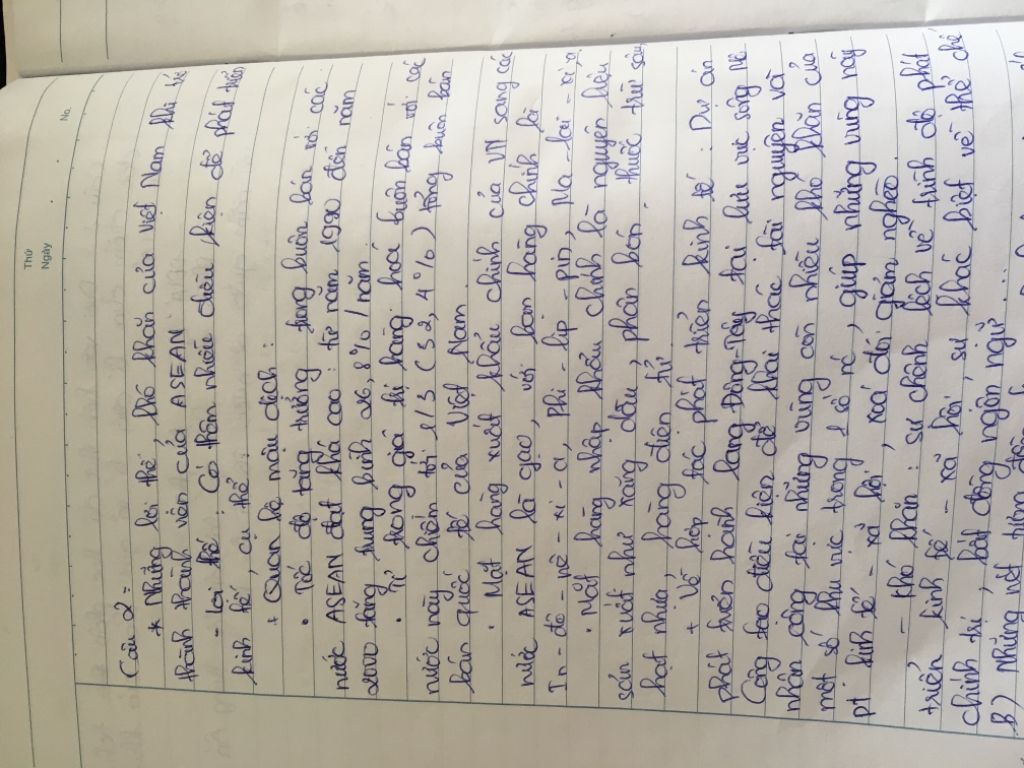 Thứ
Ngày
No.
Câu 2:
* Những lợi thế, khó khăn của việt Nam khi trở
thành thành viên của ASEAN
- Lợi thế: Có thêm nhiều điều kiện để phát triển
kinh tế, cụ thể:
+ Quan hệ mậu dịch:
• Tốc độ tăng trưởng trong buôn bán với các
nước ASEAN đạt khá cao: từ năm 1990 đến năm
2000 tăng trung bình 26,8% / năm
• Tỉ trọng giá trị hàng hoá buôn bán với các
nước này chiếm tới 1/3 (32,4%) tổng buôn bán
bán quốc tế của Việt Nam.
• Mặt hàng xuất khẩu chính của VN sang các
nước ASEAN là gạo, với bạn hàng chính là
In-đô-nê-xi-a, Phi-líp-pin, Ma-lai-xi-a.
• Mặt hàng nhập khẩu chính là nguyên liệu
sản xuất như xăng dầu, phân bón, thuốc trừ sâu,
hạt nhựa, hàng điện tử
+ Về hợp tác phát triển kinh tế: Dự án
phát triển hành lang Đông-Tây tại lưu vực sông Mê
Công tạo điều kiện để khai thác tài nguyên và
nhân công tại những vùng còn nhiều khó khăn của
một số khu vực trong 1 số nc, giúp những vùng này
pt kinh tế - xã hội, xoá đói giảm nghèo.
- Khó khăn: sự chênh lệch về trình độ phát
triển kinh tế - xã hội, sự khác biệt về thể chế
chính trị, bất đồng ngôn ngữ...
B) Những nét tương đồng